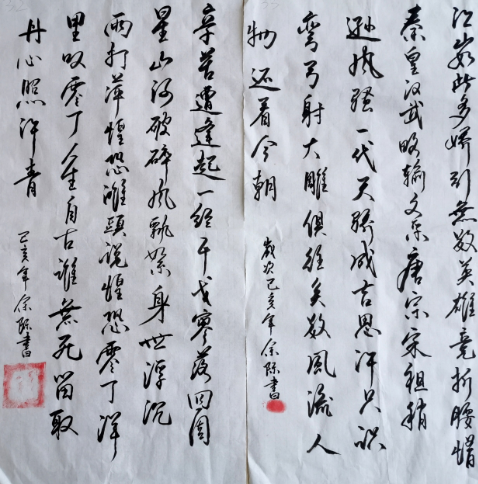 江山如此多娇引無数英雄竞折腰惜
秦皇汉武略输文采唐宗宋祖稍
逊风骚一代天骄成吉思汗只识
弯弓射大雕俱往矣数風流人
物还看今朝
歲次己亥年余陈書
辛苦遭逢起一经干戈寥落四周
星山河破碎风飘絮身世浮沉
雨打萍惶恐滩頭说惶恐零丁洋
里叹零丁人生自古谁無死留取
丹心照汗青
己亥年余陈書